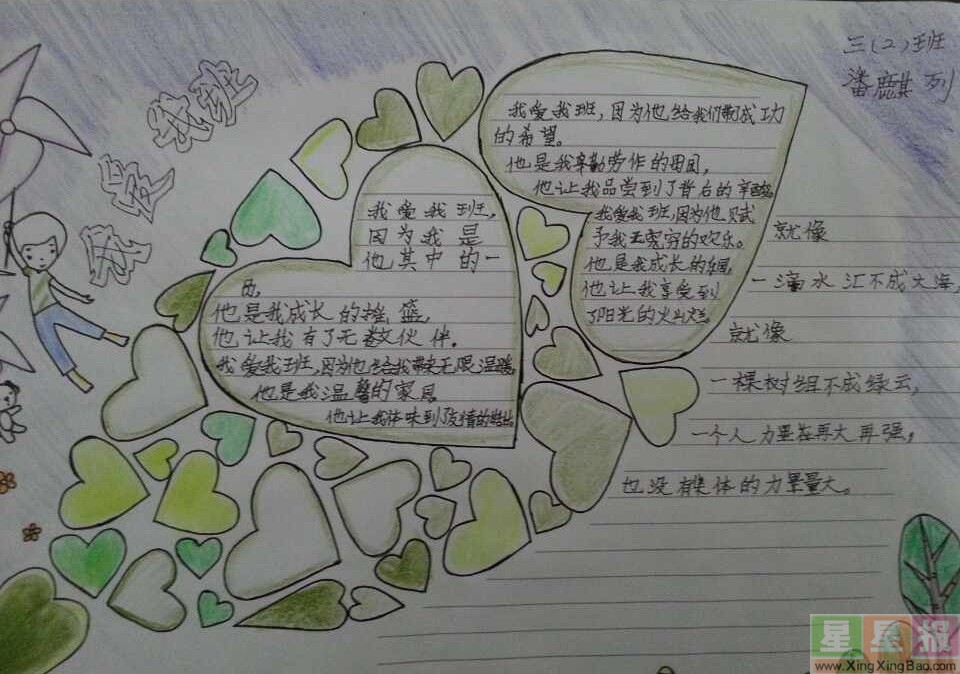 我爱我班
三(2)班
潘麒列
我爱我班，
因为我是
他其中的一
员，
他是我成长的摇篮，
他让我有了无数伙伴。
我爱我班，因为他给我带来无限温暖，
他是我温馨的家园，
他让我体味到了友情的
我爱我班，因为他给我们带成功
的希望。
他是我辛勤劳作的田园，
他让我品尝到了背后的辛酸。
我爱我班，因为他赋
予我无穷的欢乐。
他是我成长的
他让我享受到
了阳光的火
就像
一滴水汇不成大海，
就像
一棵树组不成绿云，
一个人力量在再大再强，
也没有集体的力量量大。
星星报
www.XingXingBao.com